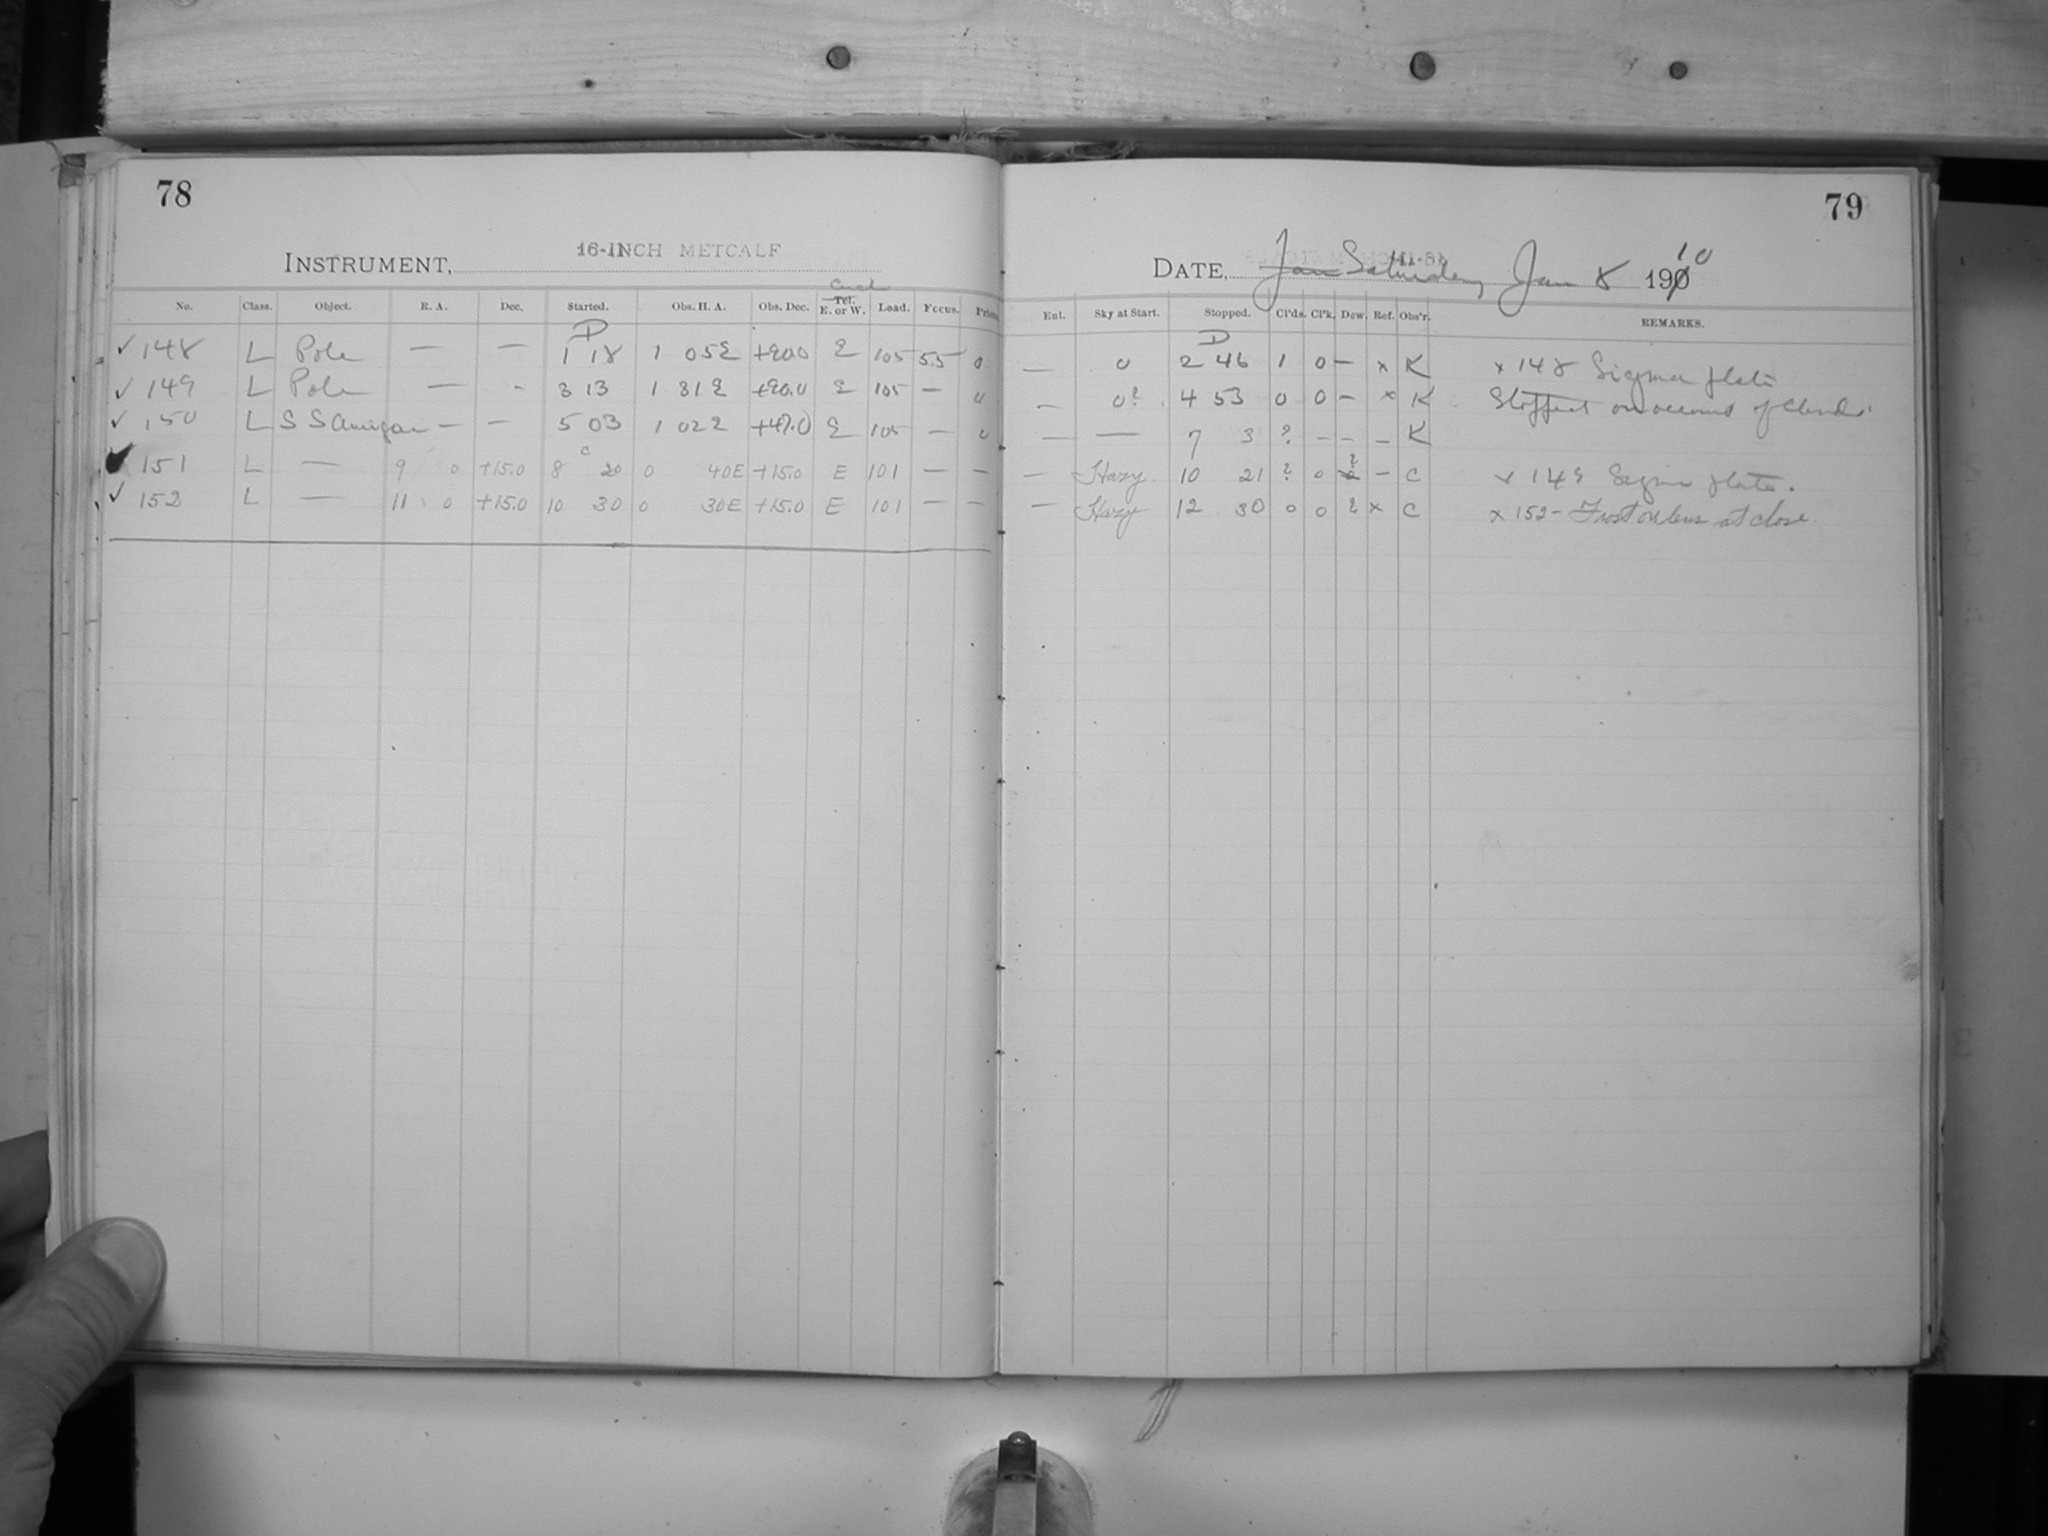 78
INSTRUMENT, 16-INCH METCALF
No. Class. Object. R. A. Dec. Started. Obs. H. A. Obs. Dec. Tel. E. or W. Lead. Focus. Prism
D
✓ 148 L Pole — — 1 18 1 05E +90.0 E 105 5.5 0
✓ 149 L Pole — - 3 13 1 31E +90.0 E 105 — 0
✓ 150 L S S Aurigae — — 5 03 1 02E +47.0 E 105 — 0
C
✓ 151 L — 9 0 +15.0 8 20 0 40E +15.0 E 101 — —
✓ 152 L — 11 0 +15.0 10 30 0 30E +15.0 E 101 — —
79
DATE, Jan Saturday, Jan 8 1910
Enl. Sky at Start. Stopped. Cl'ds. Cl'k. Dew. Ref. Obs'r. REMARKS.
D
— 0 2 46 1 0 — x K x 148 Sigma plate
— 0? 4 53 0 0 — x K Stopped on account of clouds.
— — 7 3 ? - - - K
— Hazy. 10 21 ? 0 ? — C x 149 Sigma plate.
— Hazy 12 30 0 0 ? x C x 152 - Frost on lens at close.